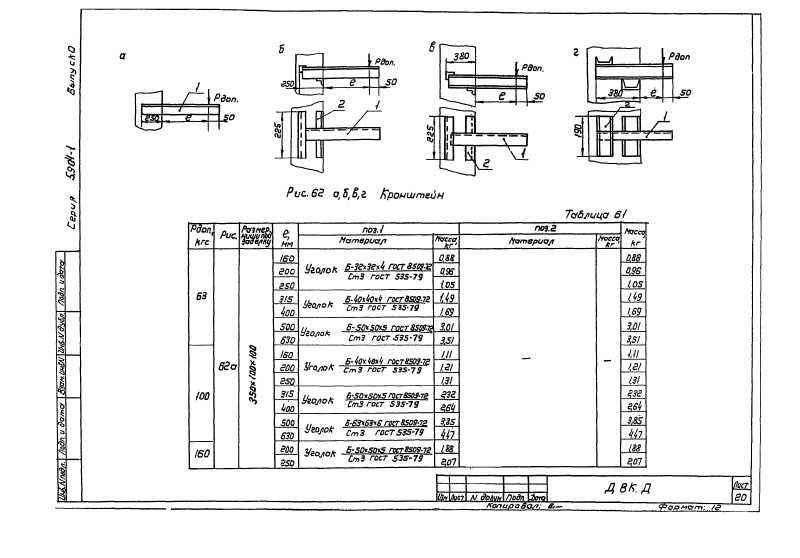 Серия 5.904-1 Выпуск 0
а
1
Рдоп.
250 е 50
б
Рдоп.
250 е 50
2 1
225
в
380
Рдоп.
е 50
225
1
2
г
Рдоп
380 е 50
2
1
190
Рис. 62 а,б,в,г Кронштейн
Таблица 61
Рдоп, кгс Рис. Размер ниши под заделку е, мм поз.1 поз.2 Масса, кг
Материал Масса кг Материал Масса, кг
63 62а 350×100×100 160 Уголок Б-32×32×4 ГОСТ 8509-72 / Ст3 ГОСТ 535-79 0,88 — — 0,88
200 0,96 0,96
250 1,05 1,05
315 Уголок Б-40×40×4 ГОСТ 8509-72 / Ст3 ГОСТ 535-79 1,49 1,49
400 1,69 1,69
500 Уголок Б-50×50×5 ГОСТ 8509-72 / Ст3 ГОСТ 535-79 3,01 3,01
630 3,51 3,51
100 160 Уголок Б-40×40×4 ГОСТ 8509-72 / Ст3 ГОСТ 535-79 1,11 1,11
200 1,21 1,21
250 1,31 1,31
315 Уголок Б-50×50×5 ГОСТ 8509-72 / Ст3 ГОСТ 535-79 2,32 2,32
400 2,64 2,64
500 Уголок Б-63×63×6 ГОСТ 8509-72 / Ст3 ГОСТ 535-79 3,85 3,85
630 4,47 4,47
160 200 Уголок Б-50×50×5 ГОСТ 8509-72 / Ст3 ГОСТ 535-79 1,88 1,88
250 2,07 2,07
Инв.N подл. Подп и дата Взам инв.N Инв.N дубл. Подп и дата
Изм Лист N докум Подп Дата
Д 8К. Д
Лист
20
Копировал:
Формат: 12